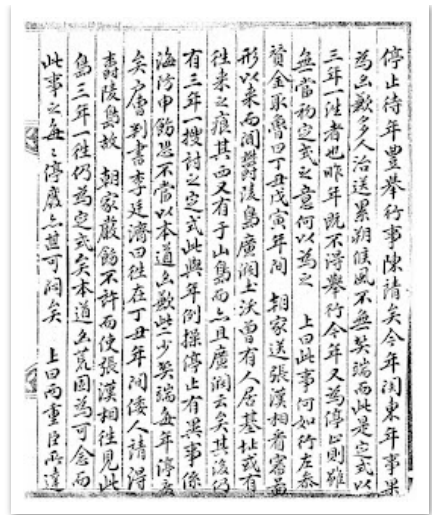 停止待年豊擧行事陳請矣今年関東年事果
為凶歉多人治送累朔候風不無弊端而此是定式以
三年一往者也昨年既不得擧行今年又為停止則雖
無當初定式之意何以為之 上曰此事何如行左參
贊金取魯曰丁丑戊寅年間 朝家送張漢相看審啚
形以来而聞欝陵島廣濶土沃曽有人居基址或有
往来之痕其西又有于山島而亦且廣濶云矣其後仍
有三年一搜討之定式此與年例操停止有異事係
海防申飭恐不當以本道凶歉些少弊端每年停廢
矣戶曹判書李廷濟曰往在丁丑年間倭人請得
欝陵島故 朝家嚴飭不許而使張漢相往見此
島三年一往仍為定式矣本道凶荒固為可念而
此事之每々停廢亦甚可悶矣 上曰両重臣所達